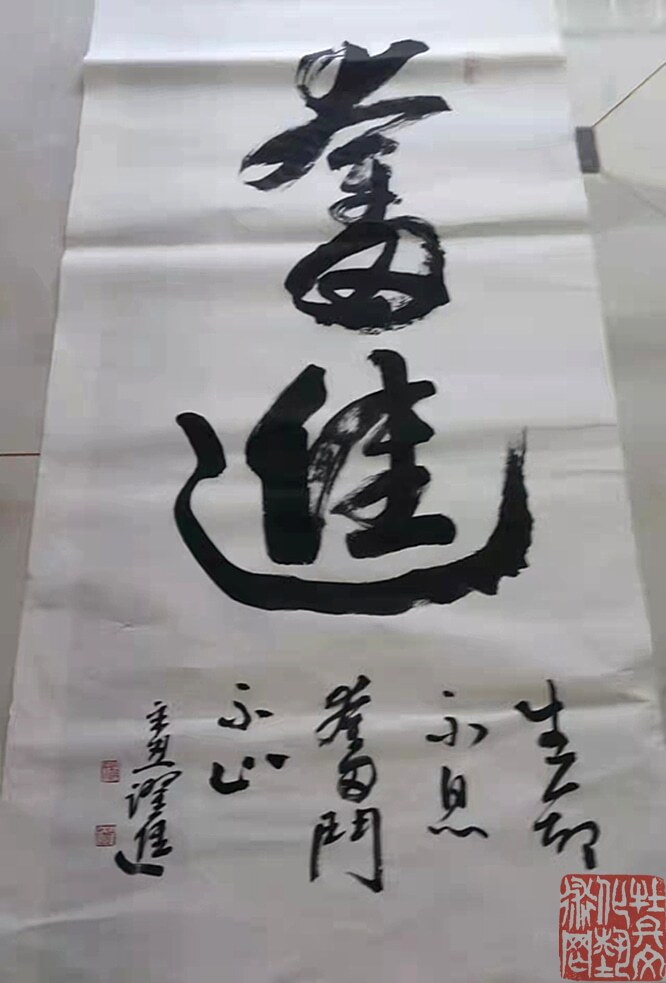 奮進
生命
不息
奮鬥
不止
辛丑